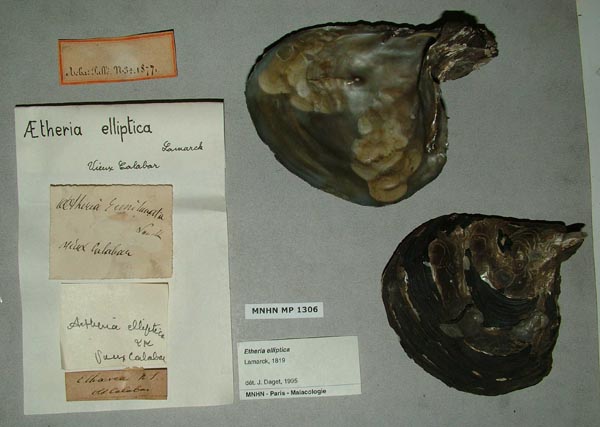 1877.
Ætheria elliptica
Lamarck
Vieux Calabar
Vieux Calabar
Aetheria elliptica
Lk
Vieux Calabar
Old Calabar
MNHN MP 1306
Etheria elliptica
Lamarck, 1819
dét. J. Daget, 1995
MNHN - Paris - Malacologie